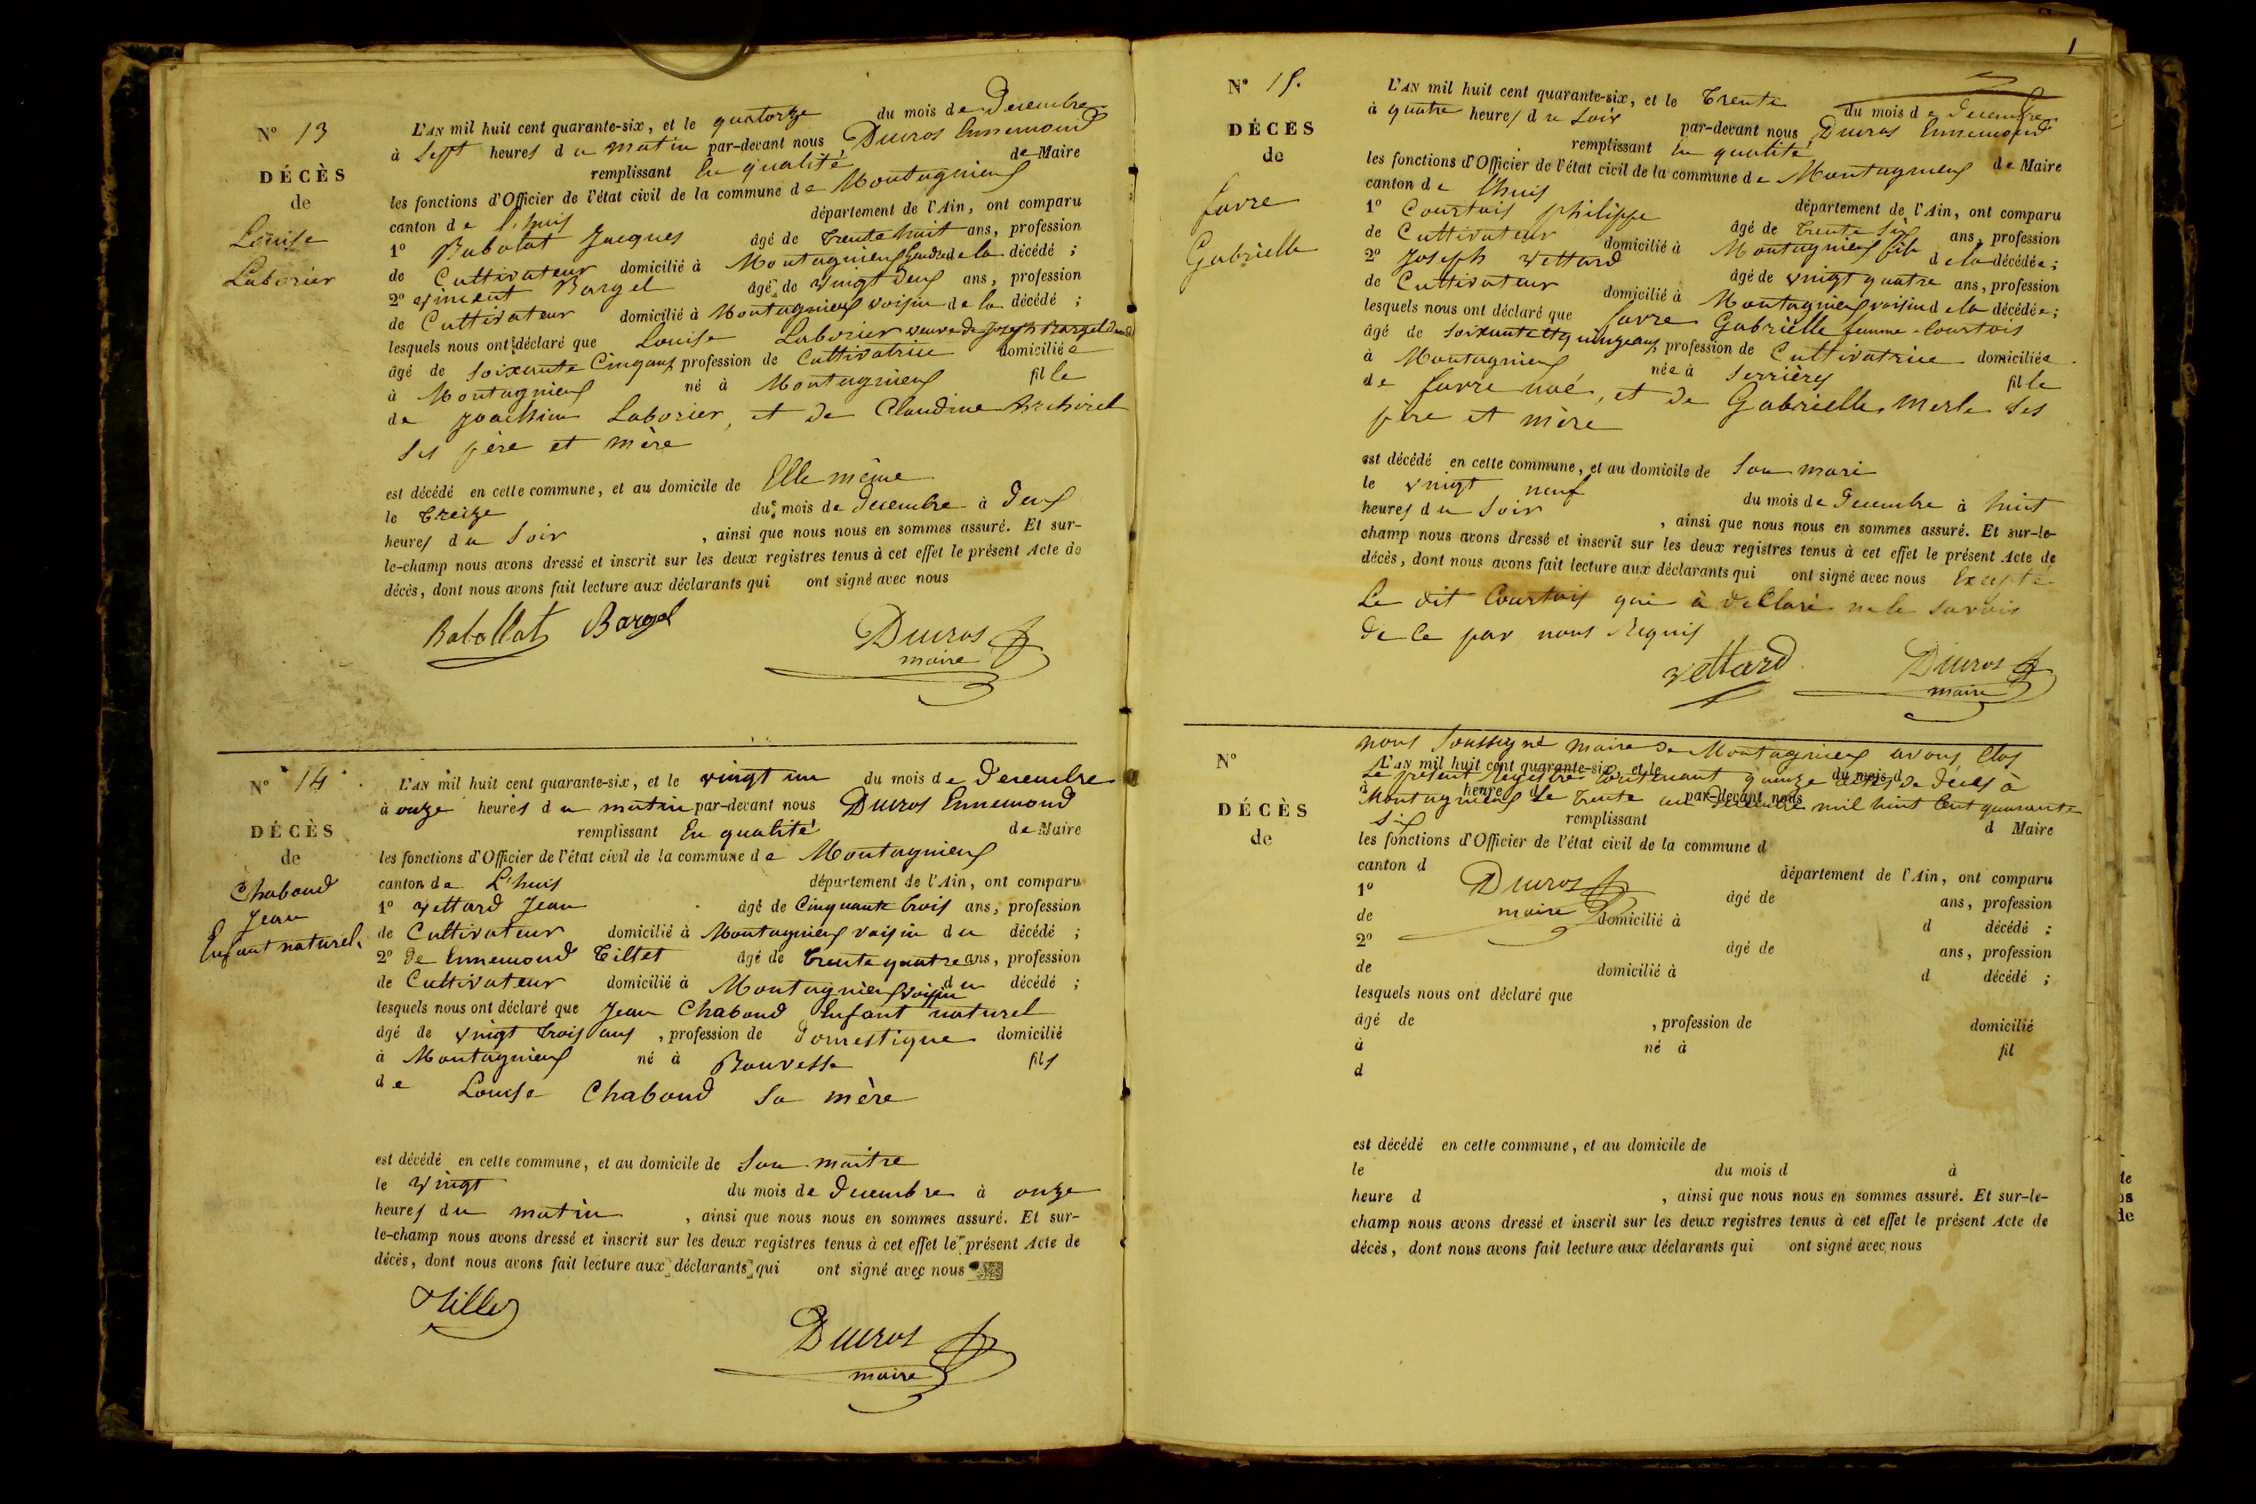 N° 13
DÉCÈS
de
Louise
Laborier
L'AN mil huit cent quarante-six, et le quatorze du mois de Decembre
à Sept heures du matin par-devant nous Ducros Ennemond
remplissant En qualité de Maire
les fonctions d'Officier de l'état civil de la commune de Montagnieu
canton de l'huis département de l'Ain, ont comparu
1° Babolat Jacques âgé de trente huit ans, profession
de Cultivateur domicilié à Montagnieu Gendre de la décédé ;
2° Vincent Bargel âgé de vingt deux ans, profession
de Cultivateur domicilié à Montagnieu voisin de la décédé ;
lesquels nous ont déclaré que Louise Laborier veuve de Joseph Bargel
âgé de Soixante Cinq ans, profession de Cultivatrice domiciliée
à Montagnieu né à Montagnieu fille
de Joachim Laborier, et de Claudine
Ses père et mère
est décédé en cette commune, et au domicile de Elle même
le treize du mois de decembre à deux
heures du Soir , ainsi que nous nous en sommes assuré. Et sur-
le-champ nous avons dressé et inscrit sur les deux registres tenus à cet effet le présent Acte de
décès, dont nous avons fait lecture aux déclarants qui ont signé avec nous
Babollat Bargel Ducros
maire
N° 14
DÉCÈS
de
Chaboud
Jean
Enfant naturel
L'AN mil huit cent quarante-six, et le vingt un du mois de Decembre
à onze heures du matin par-devant nous Ducros Ennemond
remplissant En qualité de Maire
les fonctions d'Officier de l'état civil de la commune de Montagnieu
canton de L'huis département de l'Ain, ont comparu
1° Vettard Jean âgé de Cinquante trois ans, profession
de Cultivateur domicilié à Montagnieu voisin du décédé ;
2° de Ennemond Tillet âgé de trente quatre ans, profession
de Cultivateur domicilié à Montagnieu voisin du décédé ;
lesquels nous ont déclaré que Jean Chaboud Enfant naturel
âgé de vingt trois ans , profession de Domestique domicilié
à Montagnieu né à Bouvesse fils
de Louise Chaboud Sa mère
est décédé en cette commune, et au domicile de Son maitre
le vingt du mois de decembre à onze
heures du matin , ainsi que nous nous en sommes assuré. Et sur-
le-champ nous avons dressé et inscrit sur les deux registres tenus à cet effet le présent Acte de
décès, dont nous avons fait lecture aux déclarants qui ont signé avec nous
Ducros
maire
N° 15.
DÉCÈS
de
favre
Gabrielle
L'AN mil huit cent quarante-six, et le trente du mois de decembre
à quatre heures du Soir par-devant nous Ducros Ennemond
remplissant En qualité de Maire
les fonctions d'Officier de l'état civil de la commune de Montagnieu
canton de lhuis département de l'Ain, ont comparu
1° Courtois philippe âgé de trente six ans, profession
de Cultivateur domicilié à Montagnieu fils de la décédée ;
2° Joseph Vettard âgé de vingt quatre ans, profession
de Cultivateur domicilié à Montagnieu voisin de la décédée ;
lesquels nous ont déclaré que favre Gabrielle femme Courtois
âgé de Soixante et quinze ans, profession de Cultivatrice domiciliée
à Montagnieu née à Serrières fille
de favre noé, et de Gabrielle Merle Ses
père et mère
est décédé en cette commune, et au domicile de Son mari
le vingt neuf du mois de decembre à huit
heures du Soir , ainsi que nous nous en sommes assuré. Et sur-le-
champ nous avons dressé et inscrit sur les deux registres tenus à cet effet le présent Acte de
décès, dont nous avons fait lecture aux déclarants qui ont signé avec nous Excepté
Le dit Courtois qui à déclaré ne le Savoir
de Ce par nous Requis
Vettard Ducros
maire
N°
DÉCÈS
de
nous Soussigné maire de Montagnieu avons Clos
L'AN mil huit cent quarante-six, et le du mois d
Le présent Registre Contenant quinze actes de décès à
à heure d par-devant nous
Montagnieu Le trente un Decembre mil huit Cent quarante
Six
remplissant d Maire
les fonctions d'Officier de l'état civil de la commune d
canton d département de l'Ain, ont comparu
Ducros
maire
1° âgé de ans, profession
de domicilié à d décédé ;
2° âgé de ans, profession
de domicilié à d décédé ;
lesquels nous ont déclaré que
âgé de , profession de domicilié
à né à fil
d
est décédé en cette commune, et au domicile de
le du mois d à
heure d , ainsi que nous nous en sommes assuré. Et sur-le-
champ nous avons dressé et inscrit sur les deux registres tenus à cet effet le présent Acte de
décès, dont nous avons fait lecture aux déclarants qui ont signé avec nous